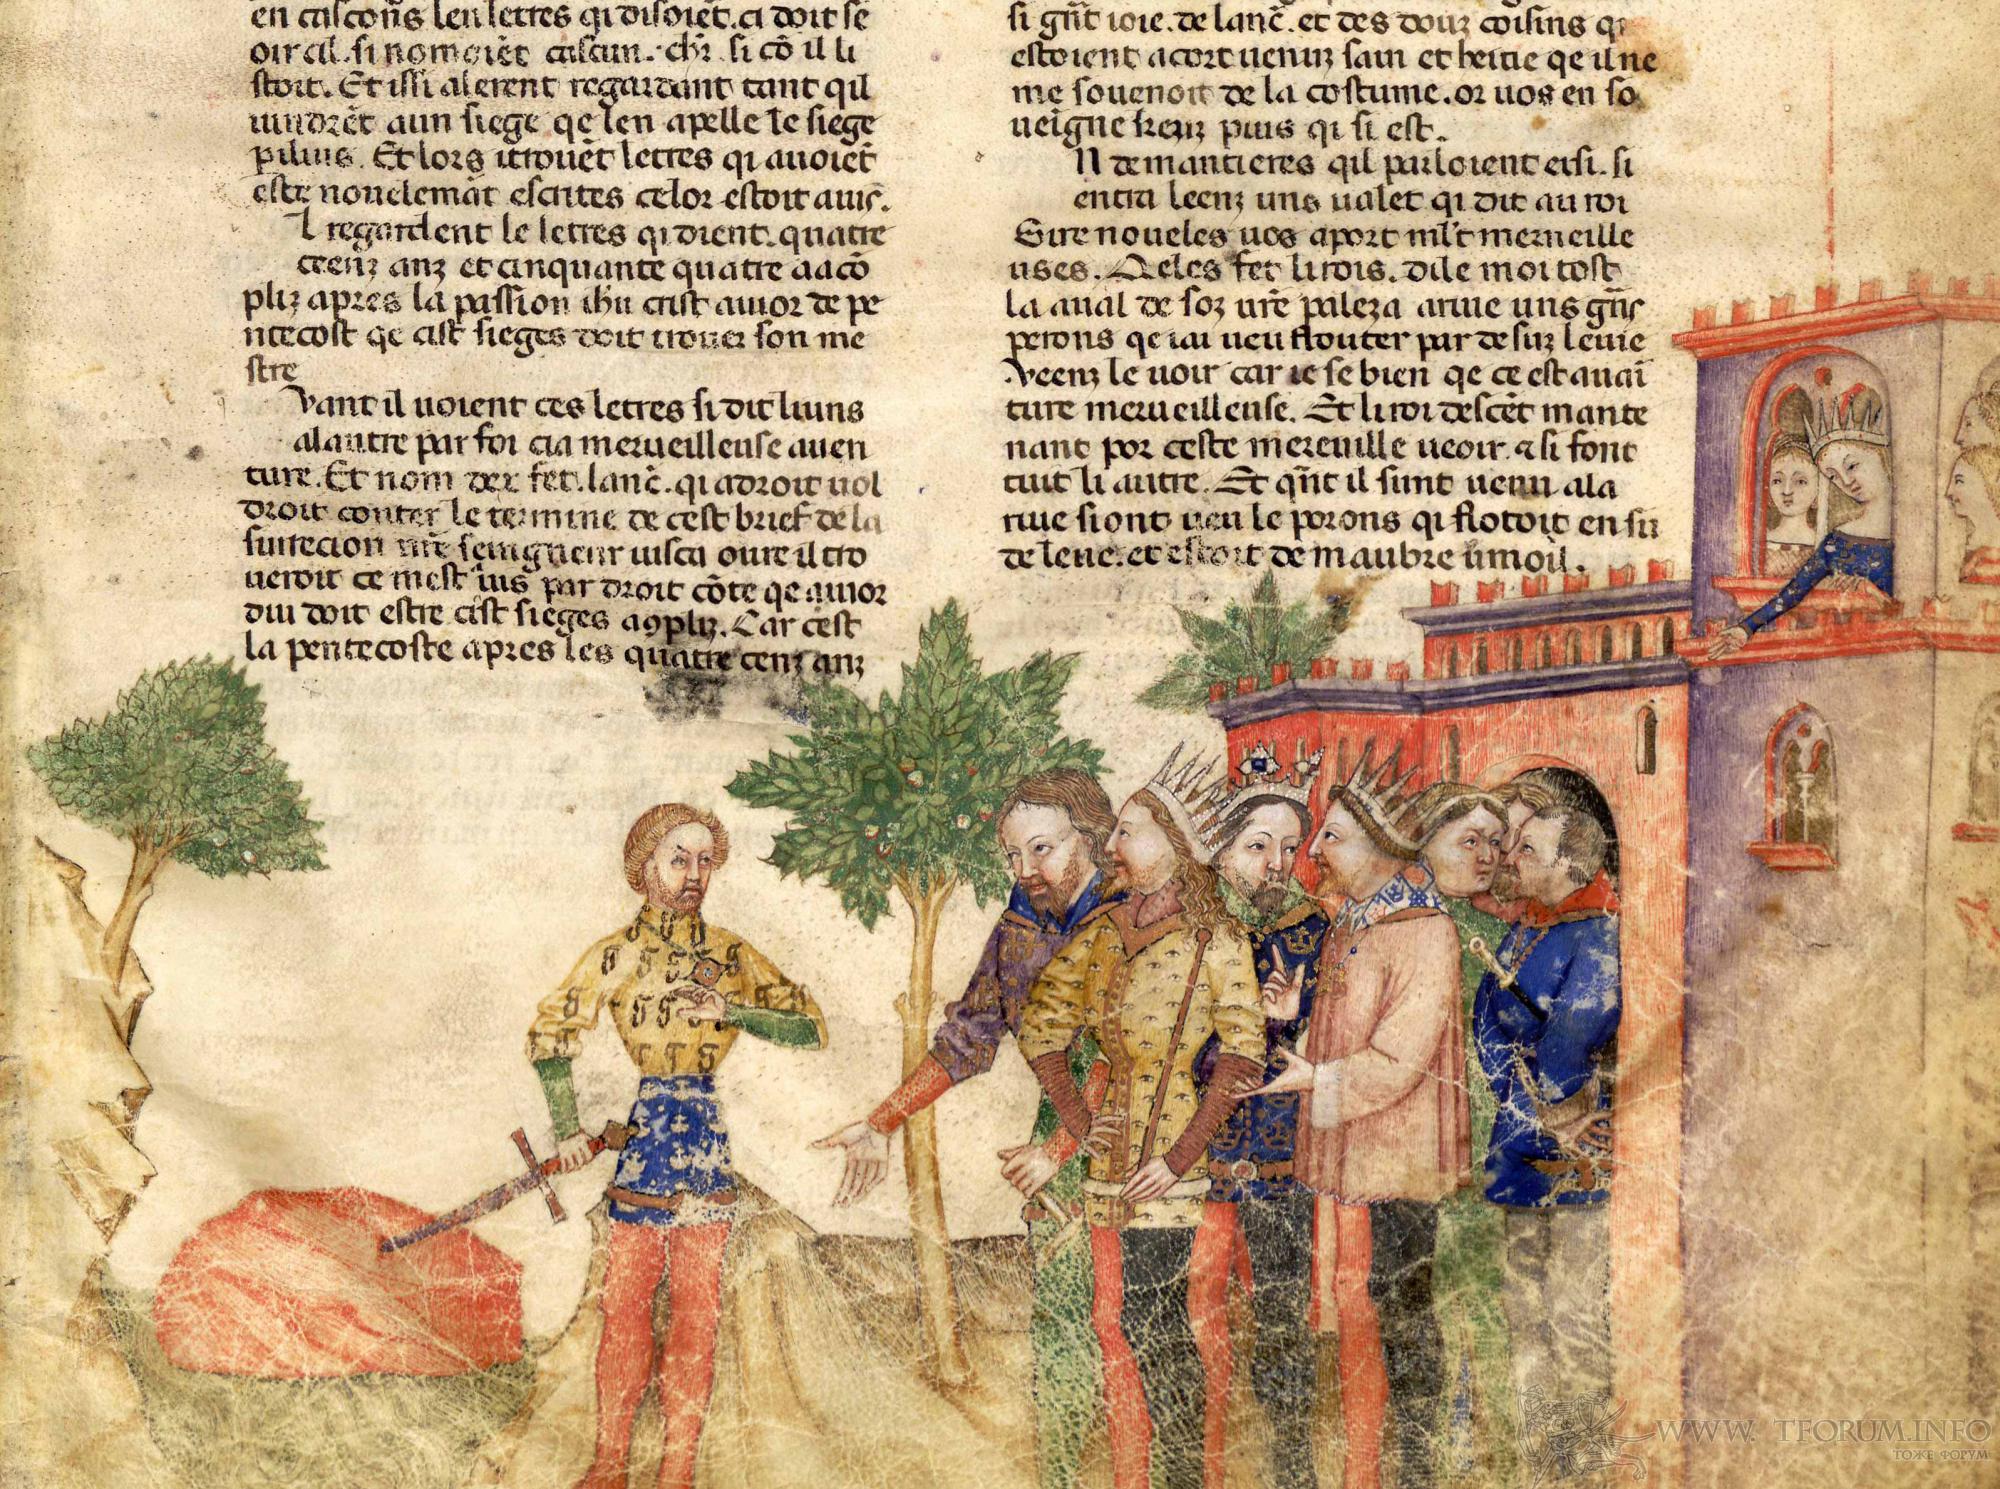 en cascõns leu lettres qi disoiẽt. ci doit se
oir cil. si nomoiẽt cascun. chr̃. si cõ il li
stoit. Et issi alerent regardant tant qil
uindrẽt aun siege qe len apelle le siege
pilius. Et lors itrouẽt letres qi auoiẽt
este nouelemãt escrites celor estoit auis.
l regardent le letres qi dient. quatre
cenz anz et cinquante quatre aacõ
pliz apres la passion ihũ crist auior de pe
ntecost qe cist sieges doit trouer son me
stre
vant il uoient ces letres si dit li uns
alautre par foi cia merueilleuse auen
ture. Et nom dex fet. lanc̃. qi adroit uol
droit conter le termine de cest brief de la
surrecion nr̃e seingneur iusca oure il tro
ueroit ce mest uis par droit cõte qe auior
dui doit estre cist sieges a9pliz. Car cest
la pentecoste apres les quatre cenz anz
si gñt ioie. de lanc̃. et des douz coisins qi
estoient acort uenuz sain et heitie qe il ne
me souenoit de la costume. or uos en so
ueigne frenz puis qi si est.
N demantieres qil parloient eisi. si
entra leenz uns ualet qi dit au roi
Sire noueles uos aport ml't merueille
uses. Qeles fet li rois. di le moi tost
la aual de soz ur̃e paleza ariue uns gñs
perons qe iai ueu flouter par desuz leuie
veenz le uoir car ie se bien qe ce est auañ
ture merueilleuse. Et li roi descẽt mante
nant por ceste mereuille ueoir. & si font
tuit li autre. Et qñt il sunt uenu ala
riue si ont ueu le porons qi flotoit en su
de leue. et estoit de maubre uimoil.
WWW. TFORUM.INFO
ТОЖЕ ФОРУМ